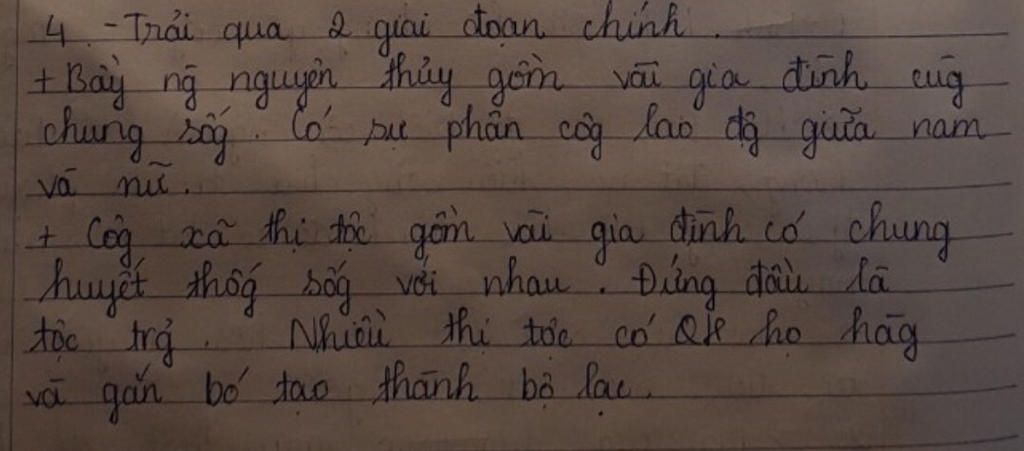 4. - Trải qua 2 giai đoạn chính.
+ Bầy ng̃ nguyên thủy gồm vài gia đình cùg
chung sốg. Có sự phân côg lao độg giữa nam
và nữ.
+ Côg xã thị tộc gồm vài gia đình có chung
huyết thốg sốg với nhau. Đứng đầu là
tộc trg̉. Nhiều thị tộc có QH họ hàg
và gắn bó tạo thành bộ lạc.